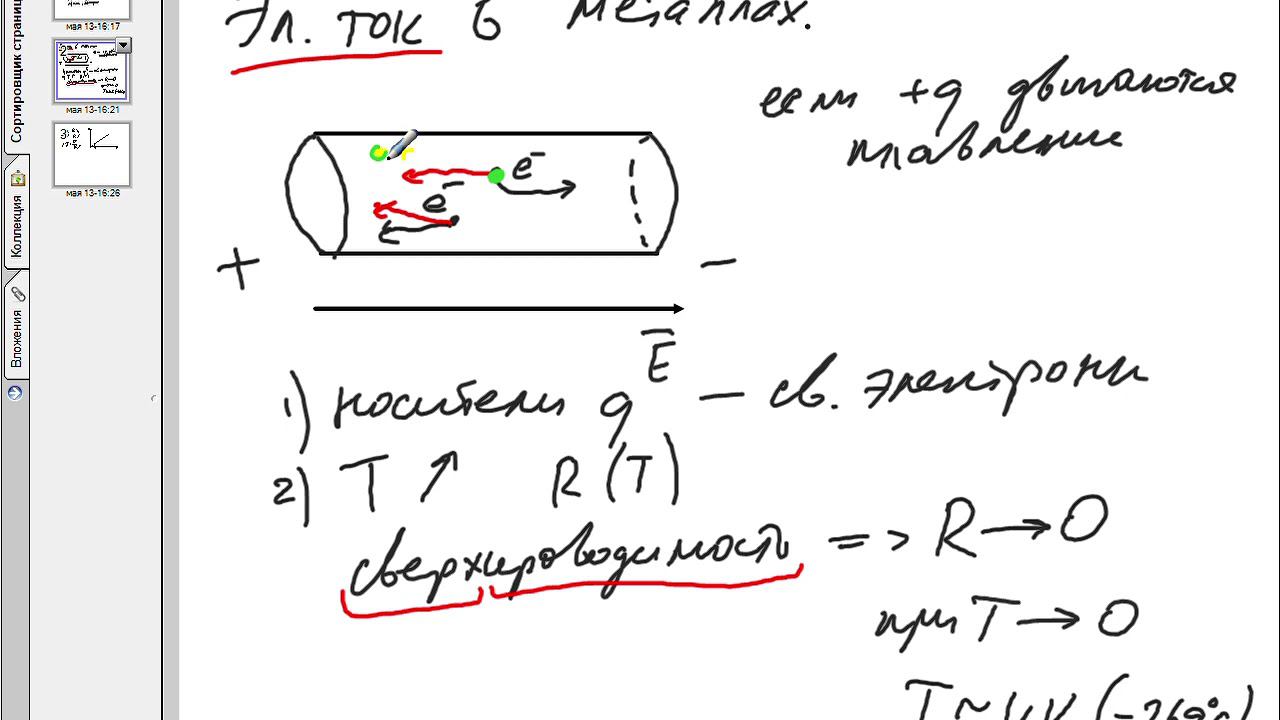 мая 13-16:17
мая 13-16:21
мая 13-16:26
Сортировщик страниц
Коллекция
Вложения
Эл. ток в металлах.
если +q двигаются
плавление
e⁻
e⁻
+
−
E
1) носители q − св. электроны
2) T ↗ R(T)
сверхпроводимость => R → 0
при T → 0
T ~ 4K (-269°c)